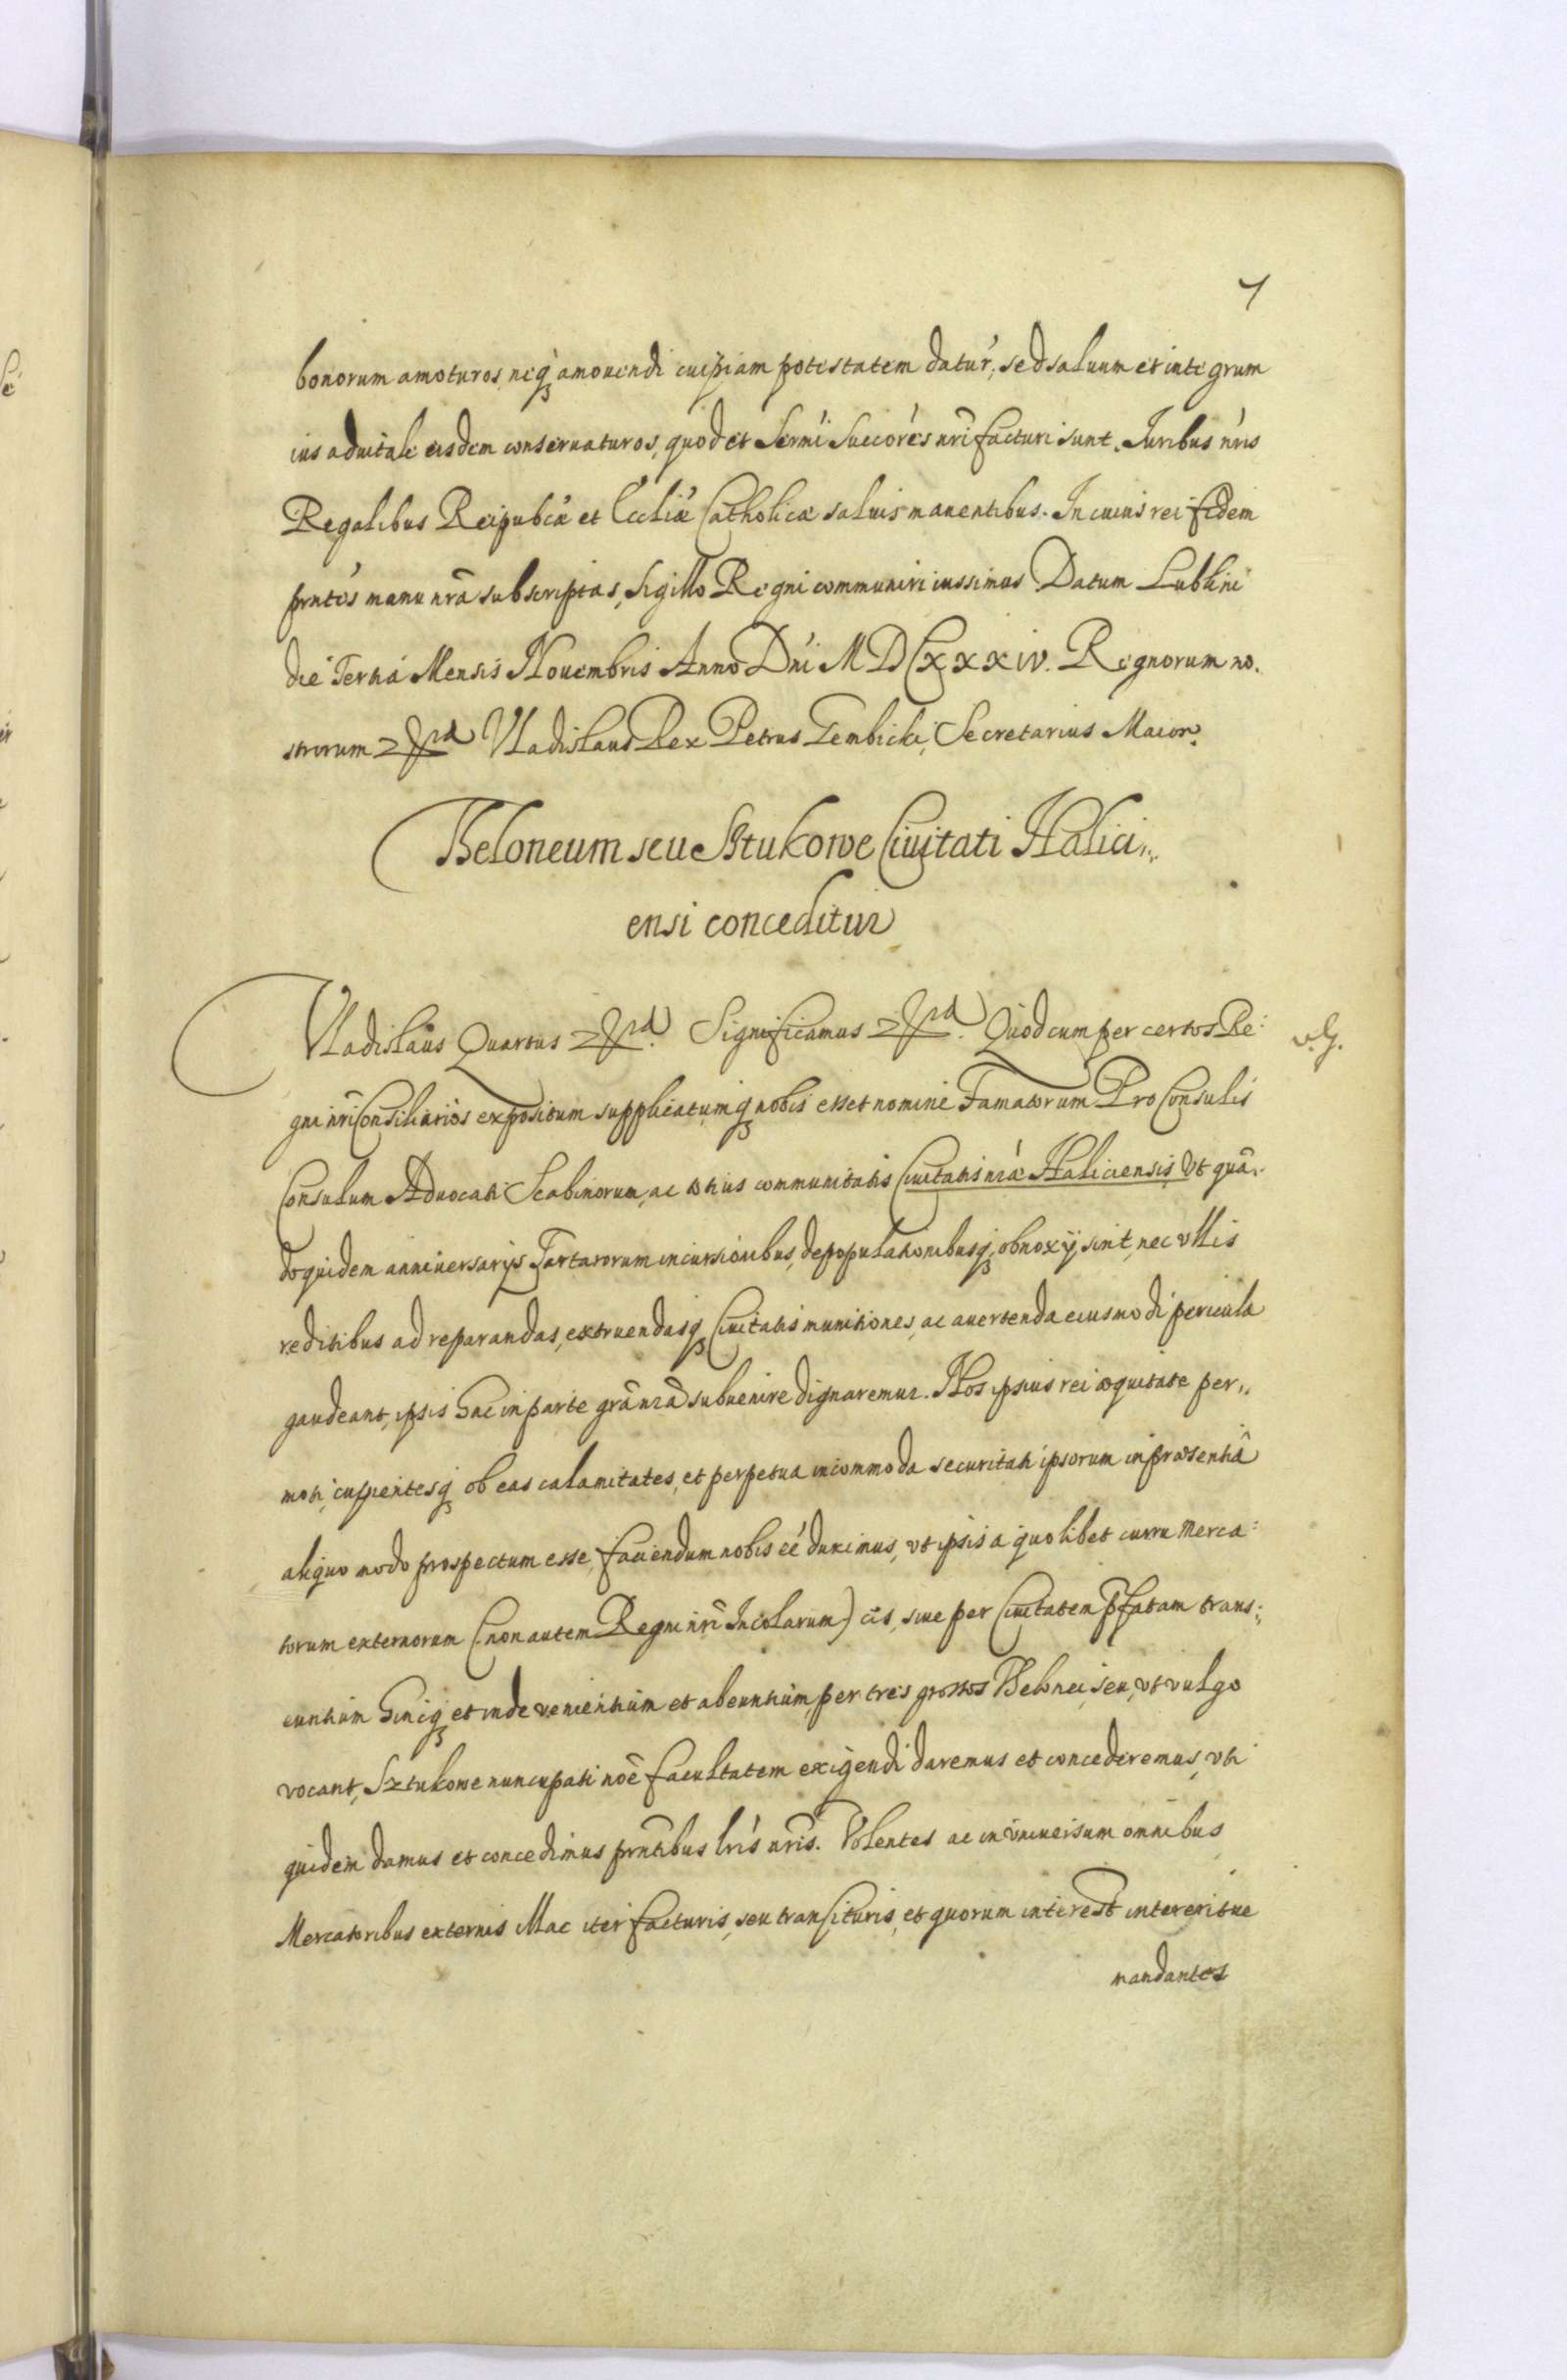 7
bonorum amoturos, neq; amouendi cuipiam potestatem datur̃, sed saluum et integrum
ius aduitale eisdem conseruaturos, quod et Sermi Succores nri facturi sunt. Juribus nris
Regalibus Reipubcæ et Eccliæ Catholicæ saluis manentibus. In cuius rei fidem
prntes manu nrã subscriptas, Sigillo Regni communiri iussimus Datum Lublini
die Tertia Mensis Nouembris Anno Dni M D CXXXIV. Regnorum no.
strorum Vladislaus Rex Petrus Gembicki, Secretarius Maior.
Theloneum seu Sztukowe Ciuitati Halici„
ensi conceditur
Vladislaus Quartus Significamus Quod cum per certos Re:
gni nri Consiliarios expositum supplicatumq; nobis esset nomine Famatorum ProConsulis
Consulum Aduocati Scabinorum, ac totius communitatis Ciuitatis nræ Haliciensis, Vt quã„
doquidem anniuersarijs Tartarorum incursionibus, depopulationibusq; obnoxij sint, nec vllis
reditibus ad reparandas, extruendasq; Ciuitatis munitiones, ac auertenda eiusmodi pericula
gaudeant, ipsis hac in parte grã nrã subuenire dignaremur. Nos ipsius rei æquitate per„
moti, cupientesq; ob eas calamitates, et perpetua incommoda securitati ipsorum in præsentiâ
aliquo modo prospectum esse, faciendum nobis eé duximus, vt ipsis a quolibet curru Merca:
torum externorum (non autem Regni nri Incolarum) cis, siue per Ciuitatem pfatam trans:
euntium hincq; et inde venientium et abeuntium, per tres grossos Thelonei, seu, vt vulgo
vocant, Sztukowe nuncupati noê facultatem exigendi daremus et concederemus, vti
quidem damus et concedimus prntibus lris nris. Volentes ac in vniuersum omnibus
Mercatoribus externis illac iter facturis, seu transituris, et quorum interest intereritue
mandantes